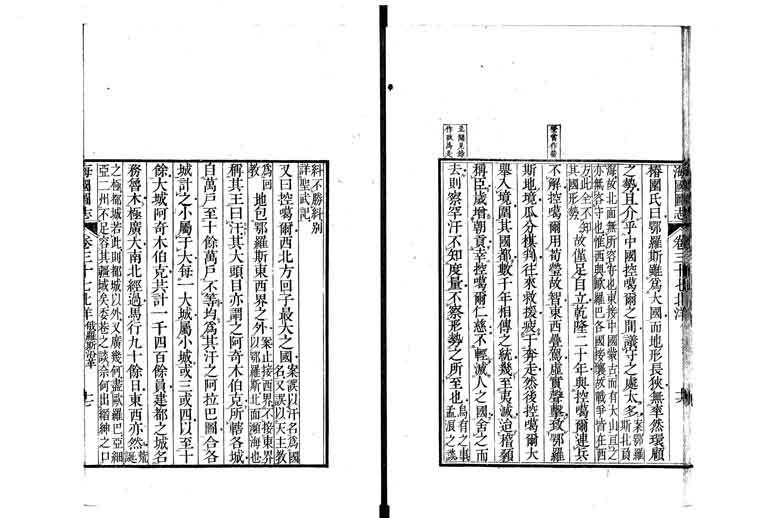 海國圖志 卷三十七北洋
椿園氏曰鄂羅斯雖為大國而地形長狹無率然環顧
之勢且介乎中國控噶爾之間議守之處太多案鄂羅斯北負
海故北面無所容守也東接中國蒙古而有大山亘之
亦無容守也惟西與歐羅巴各國接壤故戰爭皆在西
方此全不知其國形勢故僅足自立乾隆二十年與控噶爾連兵
不解控噶爾用荀瑩故智東西疊罵虛實聲擊致鄂羅
斯地境瓜分棋判往來救援疲于奔走然後控噶爾大
舉入境圍其國都數千年相傳之統幾至夷滅迨稽顙
稱臣歲增朝貢幸控噶爾仁慈不輕滅人之國舍之而
去則察罕汗不知度量不察形勢之所至也烏有之事孟浪之談
瑩當作罃
糾不勝糾別
詳聖武記
又曰控噶爾西北方回子最大之國案誤以汗名為國名又誤以天主教
為回教地包鄂羅斯東西界之外案止接西界不接東界以鄂羅斯北面瀕海也
稱其王曰汗其大頭目亦謂之阿奇木伯克所轄各城
自萬戶至十餘萬戶不等均為其汗之阿拉巴圖合各
城計之小屬于大每一大城屬小城或三或四以至十
餘大城阿奇木伯克共計一千四百餘員建都之城名
務魯木極廣大南北經過馬行九十餘日東西亦然荒誕
之極都城若此則都城以外又廣幾何盡歐羅巴亞細
亞二州不足容其疆域矣委巷之談奈何出縉紳之口
海國圖志 卷三十七北洋 俄羅斯沿革